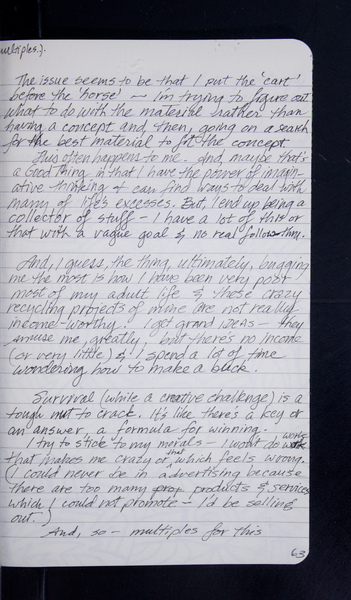 multiples.).
The issue seems to be that I put the 'cart'
before the 'horse' — I'm trying to figure out
what to do with the material rather than
having a concept and then, going on a search
for the best material to fit the concept.
This often happens to me. And, maybe that's
a good thing in that I have the power of imagin-
ative thinking & can find ways to deal with
many of life's excesses. But, I end up being a
collector of stuff — I have a lot of this or
that with a vague goal & no real follow thru.
And, I guess, the thing, ultimately, bugging
me the most is how I have been very poor
most of my adult life & these crazy
recycling projects of mine are not really
income-worthy. I get grand IDEAS — they
amuse me, greatly, but there's no income
(or very little) & I spend a lot of time
wondering how to make a buck.
Survival (while a creative challenge) is a
tough nut to crack. It's like there's a key or
an answer, a formula for winning.
I try to stick to my morals — I won't do work
that makes me crazy or that which feels wrong.
(I could never be in advertising because
there are too many prop products & services
which I could not promote — I'd be selling
out.)
And, so — multiples for this
63